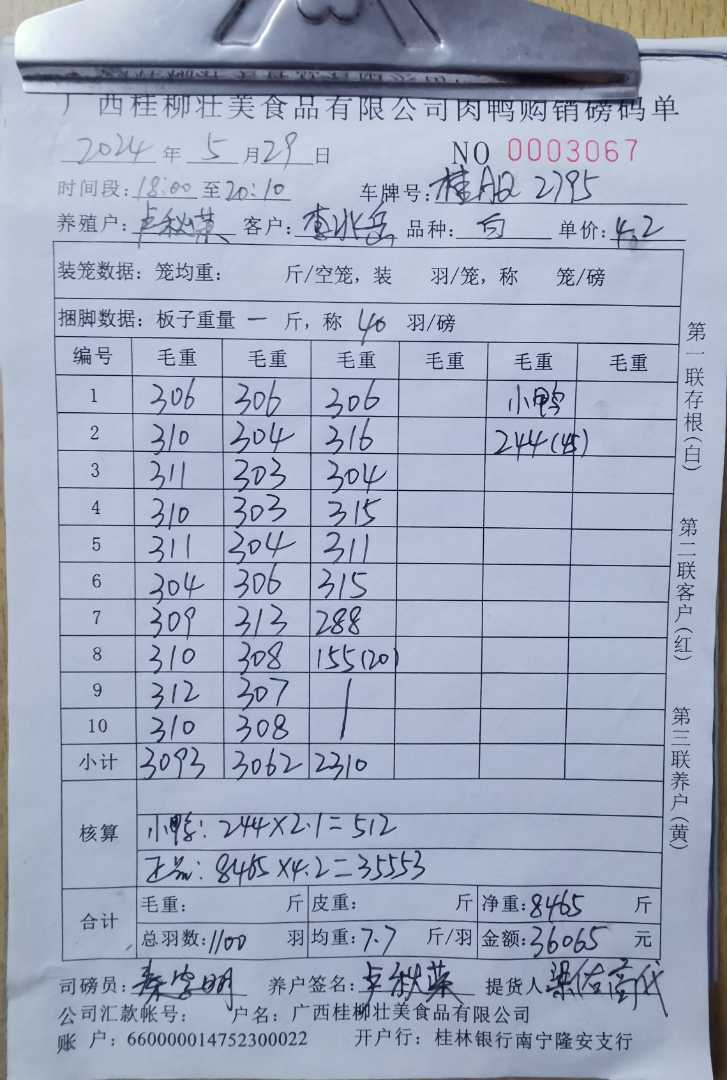 广西桂柳壮美食品有限公司肉鸭购销磅码单
2024 年 5 月 29 日 NO 0003067
时间段: 18:00 至 20:10 车牌号: 桂AQ 2795
养殖户: 卢秋菜 客户: 品种: 白 单价: 4.2
装笼数据: 笼均重: 斤/空笼, 装 羽/笼, 称 笼/磅
捆脚数据: 板子重量 一 斤, 称 40 羽/磅
编号 毛重 毛重 毛重 毛重 毛重 毛重
1 306 306 306 小鸭
2 310 304 316 244(45)
3 311 303 304
4 310 303 315
5 311 304 311
6 304 306 315
7 309 313 288
8 310 308 155(20)
9 312 307
10 310 308
小计 3093 3062 2310
核算
小鸭: 244×2.1=512
正品: 8465×4.2=35553
合计
毛重: 斤 皮重: 斤 净重: 8465 斤
总羽数: 1100 羽 均重: 7.7 斤/羽 金额: 36065 元
司磅员: 养户签名: 卢秋菜 提货人
公司汇款帐号: 户名: 广西桂柳壮美食品有限公司
账 户: 660000014752300022 开户行: 桂林银行南宁隆安支行
第一联存根(白)
第二联客户(红)
第三联养户(黄)